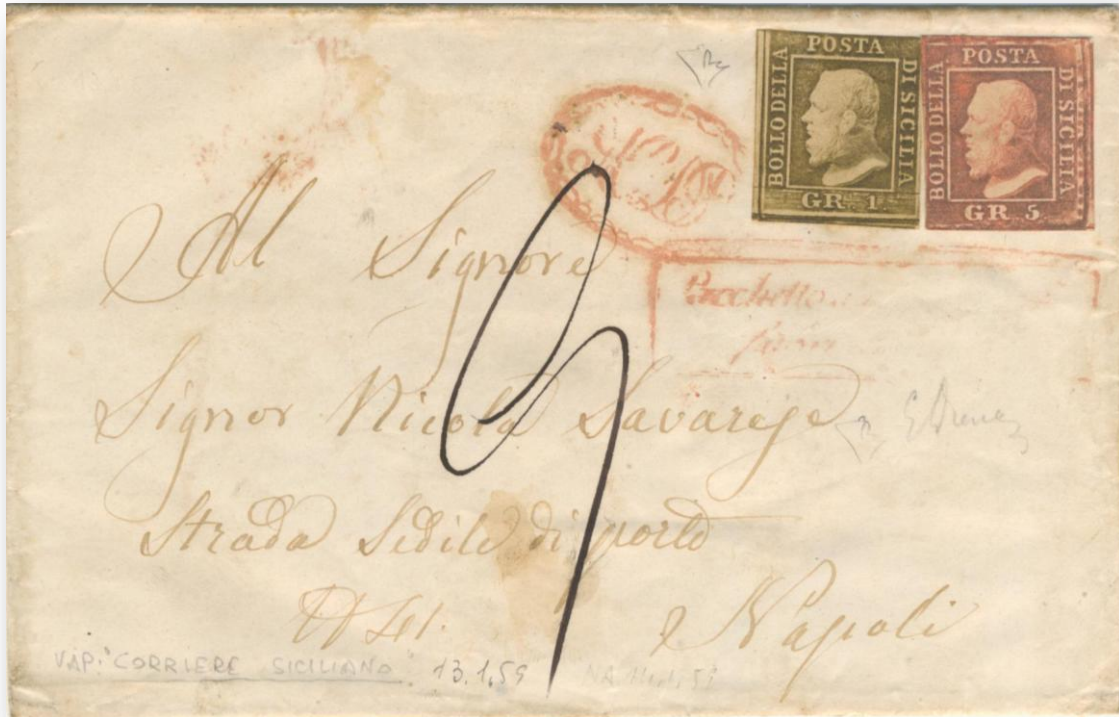 BOLLO DELLA POSTA DI SICILIA
GR. 1.
BOLLO DELLA POSTA DI SICILIA
GR. 5
Al Signore
Signor Nicola Savarese
Strada Sedile di porto
Napoli
VAP: "CORRIERE SICILIANO" 13.1.59